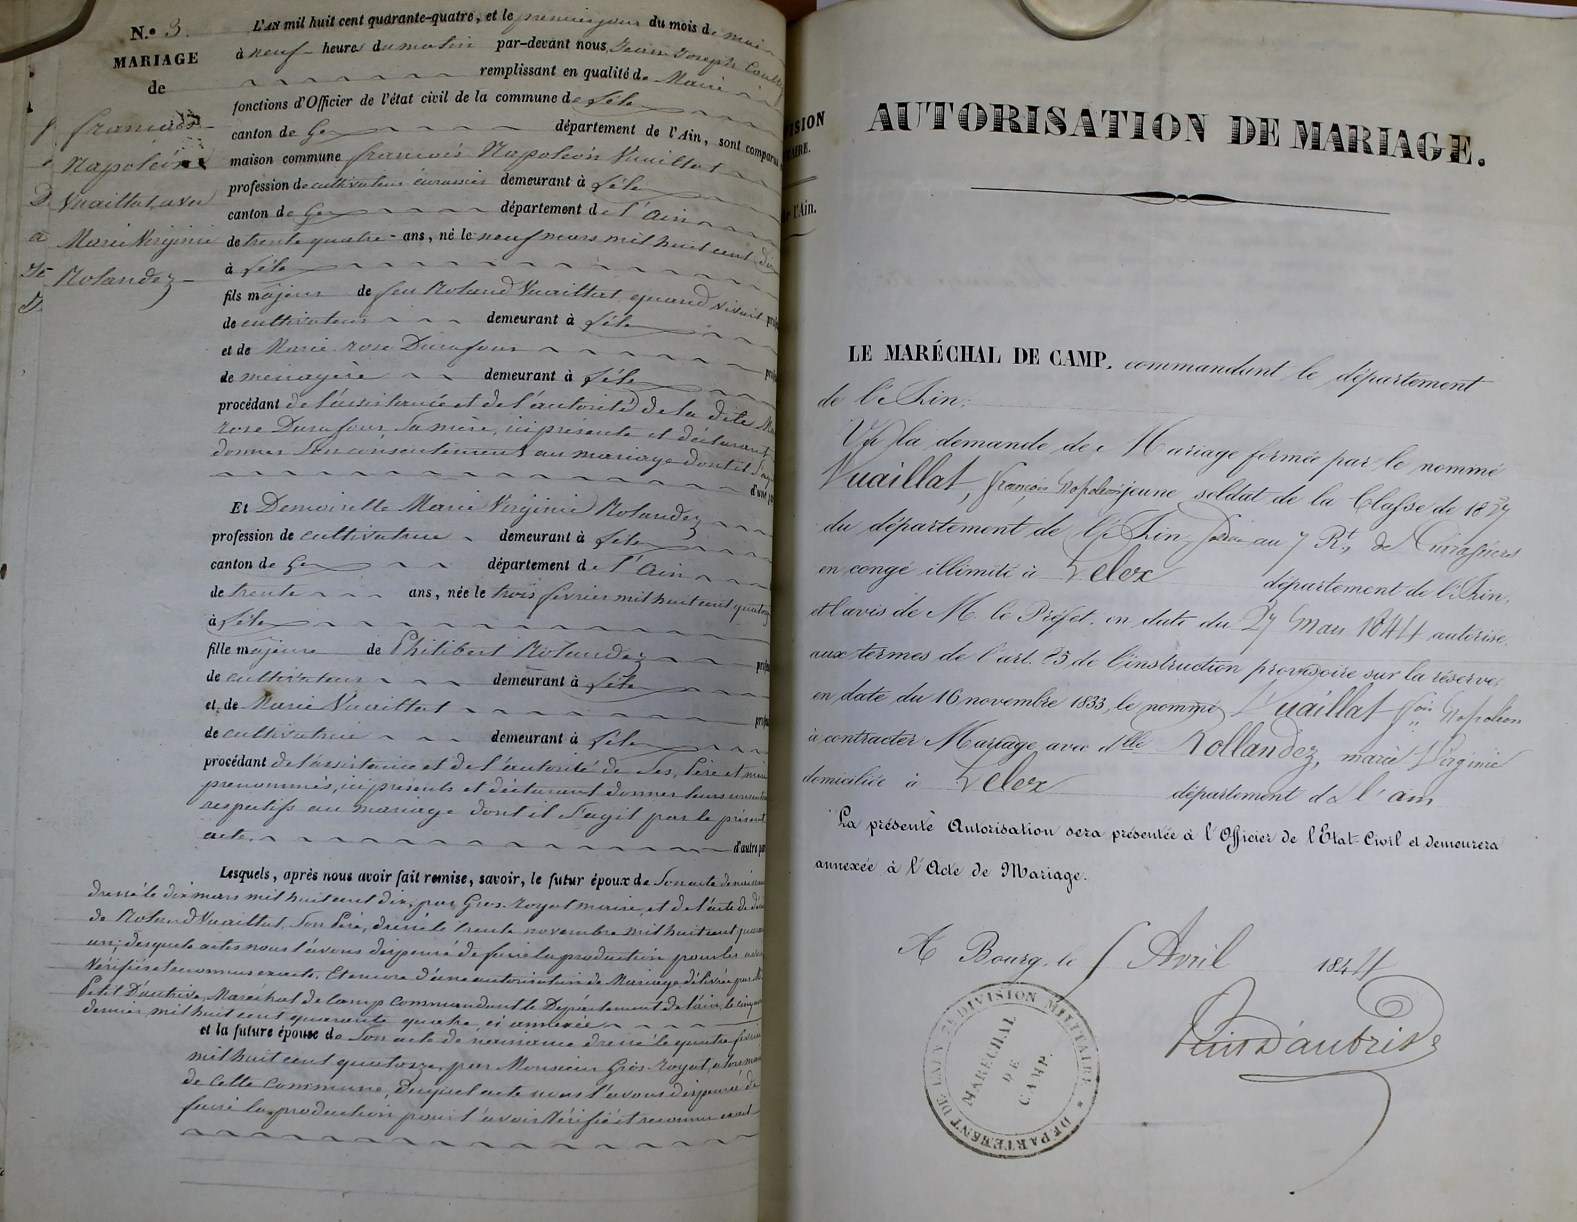 N.° 3.
MARIAGE
de
françois
Napoléon
Vuaillat avec
Marie Virginie
Rolandez
L'AN mil huit cent quarante-quatre, et le premier jour du mois de mai
à neuf heures du matin par-devant nous, Jean Joseph
remplissant en qualité de Maire
fonctions d'Officier de l'état civil de la commune de Lélex
canton de Gex département de l'Ain, sont comparus
maison commune françois Napoléon Vuaillat
profession de cultivateur cuirassier demeurant à Lélex
canton de Gex département de l'Ain
de trente quatre ans, né le neuf mars mil huit cent dix
à Lélex
fils majeur de feu Roland Vuaillat, quand vivait
de cultivateur demeurant à Lélex
et de Marie rose Durafour
de ménagère demeurant à Lélex
procédant de l'assistance et de l'autorité de la dite
rose Durafour, sa mère, ici présente et déclarant
donner son consentement au mariage dont il s'agit
d'une
Et Demoiselle Marie Virginie Rolandez
profession de cultivatrice demeurant à Lélex
canton de Gex département de l'Ain
de trente ans, née le trois fevrier mil huit cent quatorze
à Lélex
fille majeure de Philibert Rolandez
de cultivateur demeurant à Lélex
et de Marie Vuaillat
de cultivatrice demeurant à Lélex
procédant de l'assistance et de l'autorité de ses Père et mère
prénommés, ici présents et déclarant donner leurs
respectifs au mariage dont il s'agit par le présent
acte. d'autre
Lesquels, après nous avoir fait remise, savoir, le futur époux de son acte de naissance
dressé le dix mars mil huit cent dix, par Gros-Royat maire, et de l'acte de
de Roland Vuaillat, son Père, dressé le trente novembre mil huit cent
un; desquels actes nous l'avons dispensé de faire la production pour les avoir
vérifiés et reconnus exacts. Et encore d'une autorisation de Mariage délivrée par
Petit D'autrive, Maréchal de Camp commandant le Département de l'ain, le cinq
dernier mil huit cent quarante quatre, ci annexée
et la future épouse de son acte de naissance dressé le quatre fevrier
mil huit cent quatorze, par Monsieur Gros-Royat, alors maire
de cette commune, duquel acte nous l'avons dispensée de
faire la production pour l'avoir vérifié et reconnu exact
AUTORISATION DE MARIAGE.
l'Ain.
LE MARÉCHAL DE CAMP, commandant le département
de l'Ain;
Vu la demande de Mariage formée par le nommé
Vuaillat, françois Napoléon jeune soldat de la Classe de 1837
du département de l'Ain, au 7 Rt. de Cuirassiers
en congé illimité à Lelex département de l'Ain,
et l'avis de M. le Préfet, en date du 27 Mars 1844 autorise,
aux termes de l'art. 23 de l'instruction provisoire sur la réserve,
en date du 16 novembre 1833, le nommé Vuaillat fois Napoléon
à contracter Mariage avec Dlle Rollandez, marie Virginie
domiciliée à Lelex département de l'ain
La présente Autorisation sera présentée à l'Officier de l'Etat-Civil et demeurera
annexée à l'Acte de Mariage.
A Bourg, le 5 Avril 1844
DIVISION MILITAIRE * DEPARTEMENT DE L'AIN
MARÉCHAL
DE
CAMP.